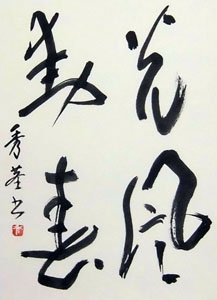 光風
動春
秀峯書